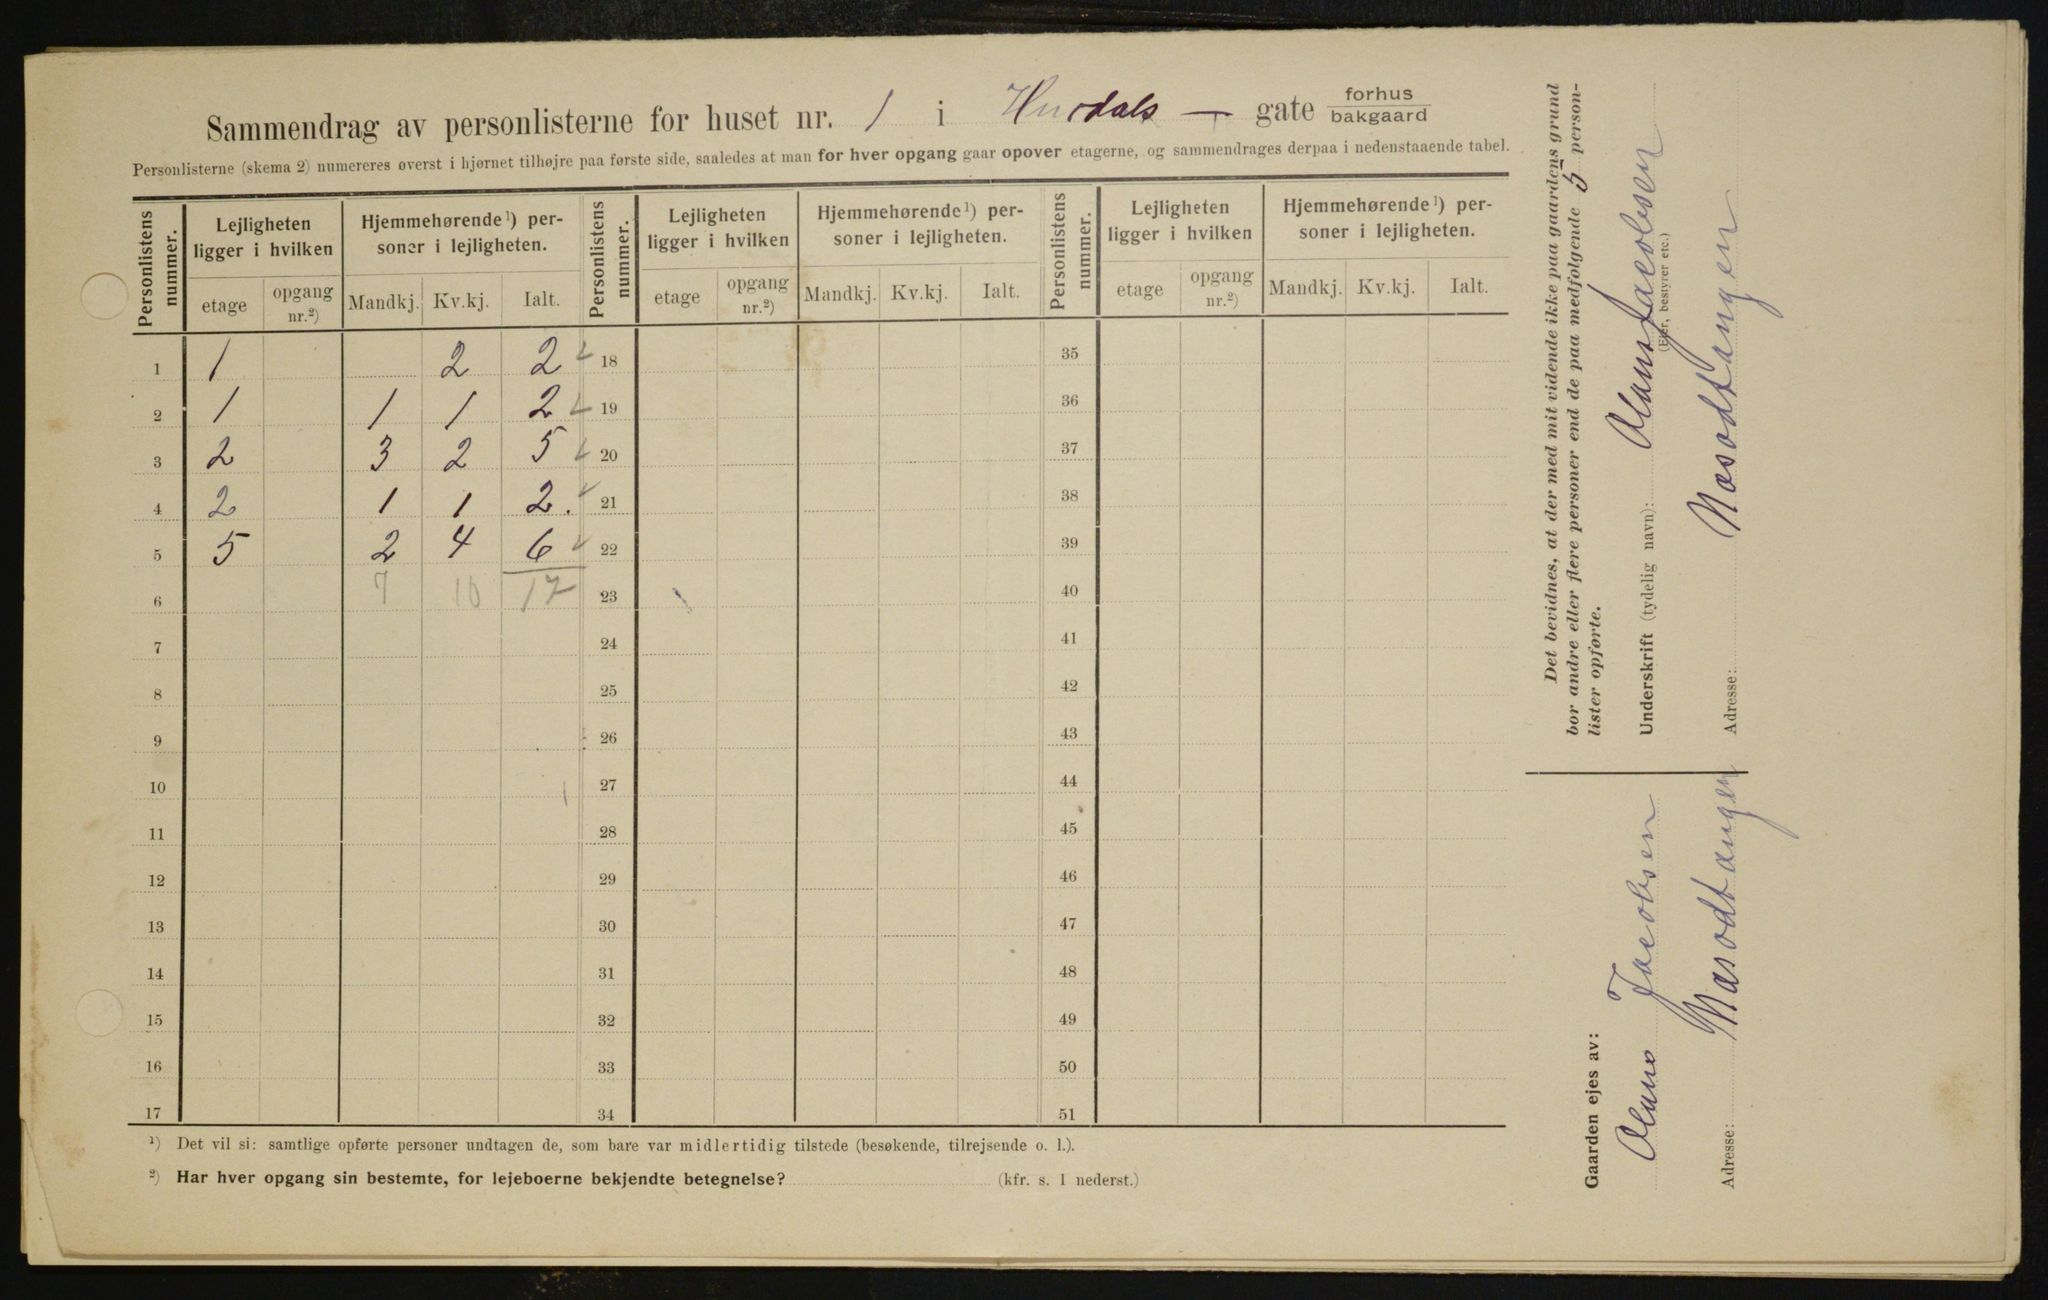 Sammendrag av personlisterne for huset nr. 1 i Hurdals — gate forhus
bakgaard
Personlisterne (skema 2) numereres øverst i hjørnet tilhøjre paa første side, saaledes at man for hver opgang gaar opover etagerne, og sammendrages derpaa i nedenstaaende tabel.
Personlistens nummer. Lejligheten ligger i hvilken Hjemmehørende¹) personer i lejligheten. Personlistens nummer. Lejligheten ligger i hvilken Hjemmehørende¹) personer i lejligheten. Personlistens nummer. Lejligheten ligger i hvilken Hjemmehørende¹) personer i lejligheten.
etage opgang nr.²) Mandkj. Kv.kj. Ialt. etage opgang nr.²) Mandkj. Kv.kj. Ialt. etage opgang nr.²) Mandkj. Kv.kj. Ialt.
1 1 2 2 18 35
2 1 1 1 2 19 36
3 2 3 2 5 20 37
4 2 1 1 2. 21 38
5 5 2 4 6 22 39
6 7 10 17 23 40
7 24 41
8 25 42
9 26 43
10 27 44
11 28 45
12 29 46
13 30 47
14 31 48
15 32 49
16 33 50
17 34 51
¹) Det vil si: samtlige opførte personer undtagen de, som bare var midlertidig tilstede (besøkende, tilrejsende o. l.).
²) Har hver opgang sin bestemte, for lejeboerne bekjendte betegnelse? (kfr. s. 1 nederst.)
Det bevidnes, at der med mit vidende ikke paa gaardens grund
bor andre eller flere personer end de paa medfølgende 5 person-
lister opførte.
Underskrift (tydelig navn): Olaus Jacobsen
(Ejer, bestyrer etc.)
Adresse: Næsodtangen
Gaarden ejes av:
Olaus Jacobsen
Adresse: Næsodtangen